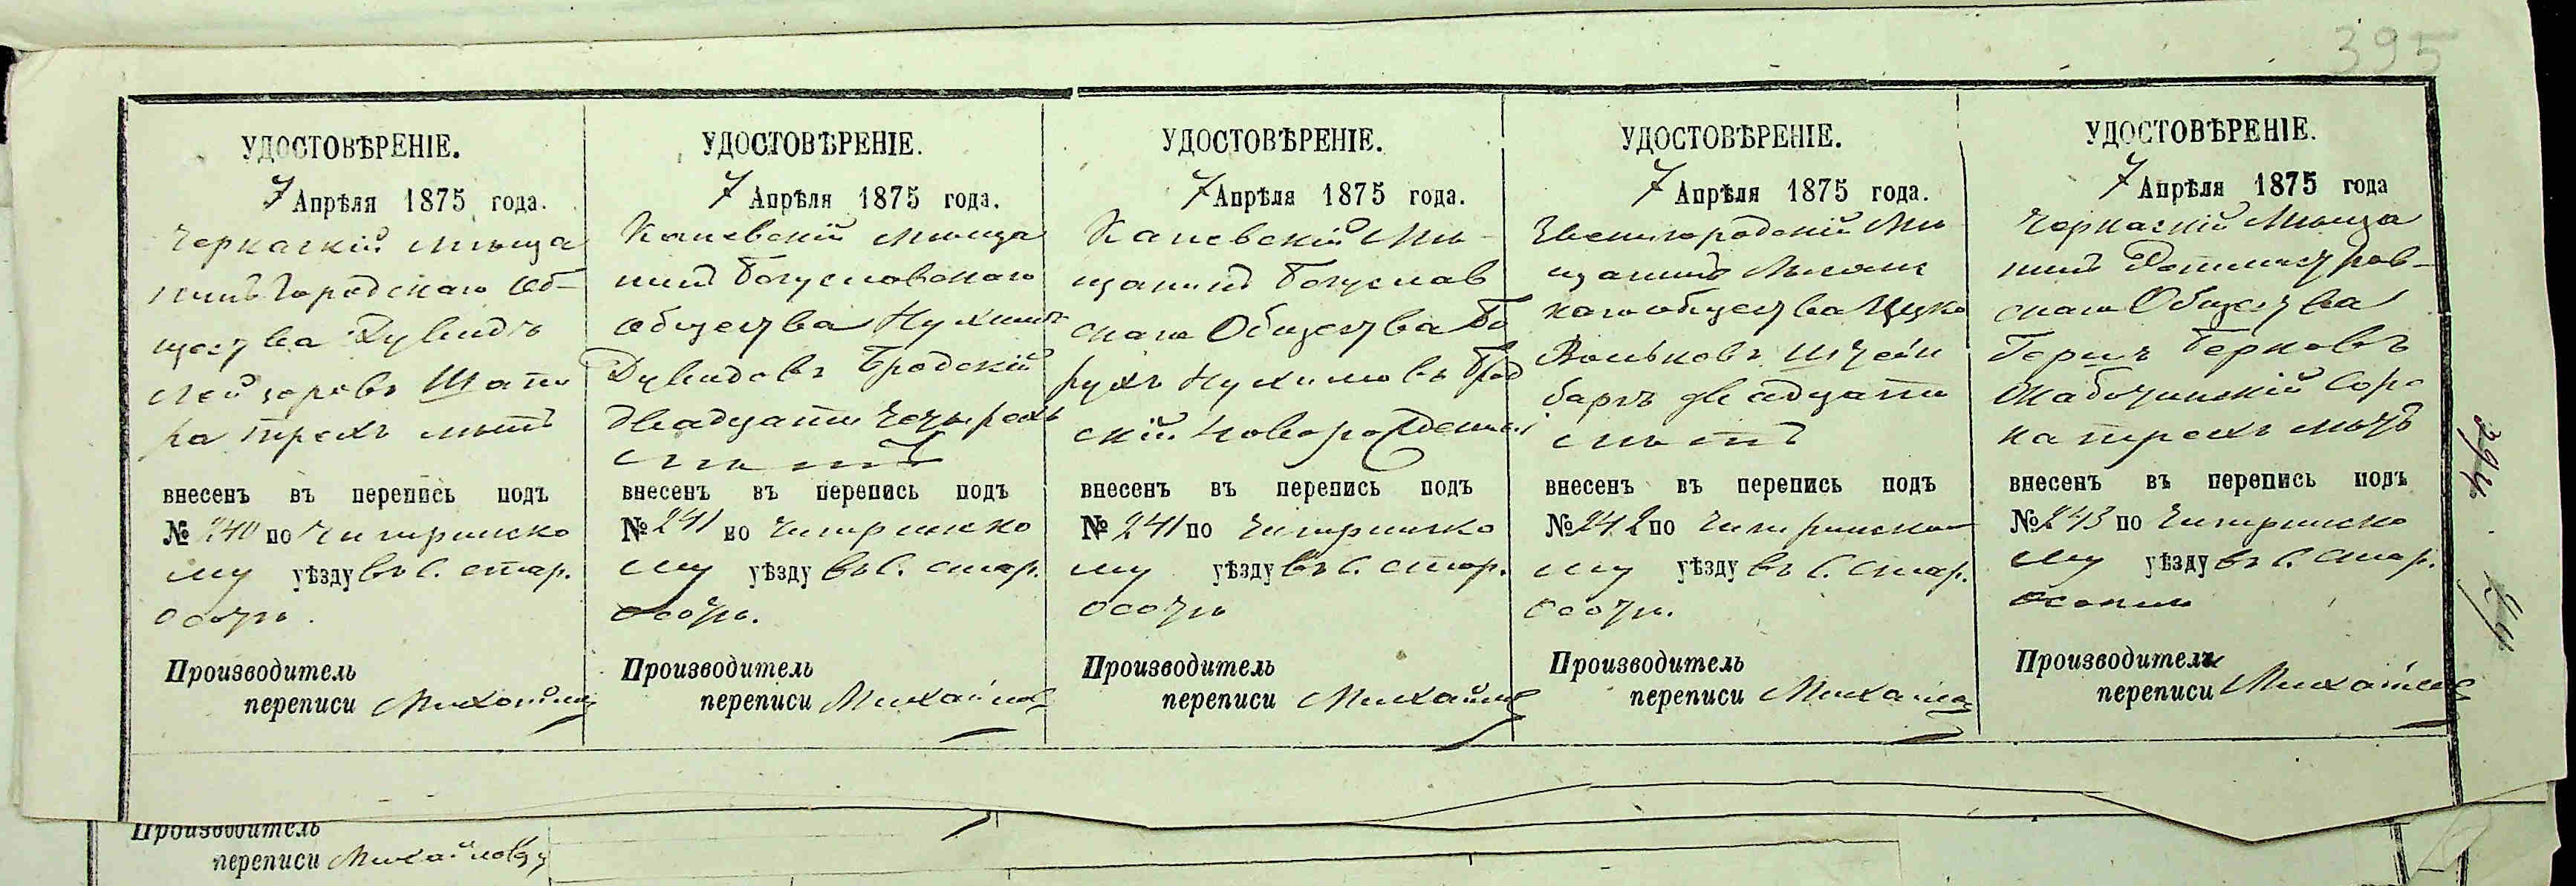 395
УДОСТОВѢРЕНІЕ.
7 Апрѣля 1875 года.
Черкаскій мѣща
нинъ Городскаго Об-
щества Дувидъ
Лейзоровъ Шапи
ра трехъ лѣтъ
внесенъ въ перепись подъ
№ 240 по Чигиринско
му уѣзду въ С. стар.
Осотѣ.
Производитель
переписи Михайловъ
УДОСТОВѢРЕНІЕ.
7 Апрѣля 1875 года.
Каневскій мѣща
нинъ Богуславскаго
общества Нухимъ
Дувидовъ Бродскій
двадцати четырехъ
лѣтъ
внесенъ въ перепись подъ
№ 241 по Чигиринско
му уѣзду въ С. стар.
Осотѣ.
Производитель
переписи Михайловъ
УДОСТОВѢРЕНІЕ.
7 Апрѣля 1875 года.
Каневскій Мѣ-
щанинъ Богуслав
скаго Общества Бо
рухъ Нухимовъ Брод
скій новорожденный
внесенъ въ перепись подъ
№ 241 по Чигиринско
му уѣзду въ С. стар.
Осотѣ
Производитель
переписи Михайловъ
УДОСТОВѢРЕНІЕ.
7 Апрѣля 1875 года.
Звенигородскій Мѣ
щанинъ Лысян
каго общества Ицко
Вольковъ Штейн
бергъ двадцати
лѣтъ
внесенъ въ перепись подъ
№ 242 по Чигиринско
му уѣзду въ С. Стар.
Осотѣ.
Производитель
переписи Михайловъ
УДОСТОВѢРЕНІЕ.
7 Апрѣля 1875 года
Черкаскій Мѣща
нинъ Ротмистров-
скаго Общества
Гершъ Берковъ
Жаботинскій Соро
ка трехъ лѣтъ
внесенъ въ перепись подъ
№ 243 по Чигиринско
му уѣзду въ С. Стар.
Осотѣ
Производитель
переписи Михайловъ
394.
Производитель
переписи Михайловъ